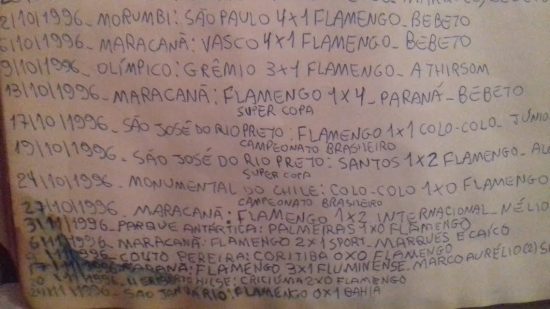 2/10/1996_ MORUMBI: SÃO PAULO 4X1 FLAMENGO_ BEBETO
6/10/1996_ MARACANÃ: VASCO 4X1 FLAMENGO_ BEBETO
9/10/1996_ OLÍMPICO: GRÊMIO 3X1 FLAMENGO_ ATHIRSOM
13/10/1996_ MARACANÃ: FLAMENGO 1X4_ PARANÁ_ BEBETO
SUPER COPA
17/10/1996_ SÃO JOSÉ DO RIO PRETO: FLAMENGO 1X1 COLO-COLO_ JÚNIO
CAMPEONATO BRASILEIRO
19/10/1996_ SÃO JOSÉ DO RIO PRETO: SANTOS 1X2 FLAMENGO_
SUPER COPA
24/10/1996_ MONUMENTAL DO CHILE: COLO-COLO 1X0 FLAMENGO
CAMPEONATO BRASILEIRO
27/10/1996_ MARACANÃ: FLAMENGO 1X2 INTERNACIONAL_ NÉLIO
PARQUE ANTÁRTICA: PALMEIRAS 1X0 FLAMENGO
6/11/1996_ MARACANÃ: FLAMENGO 2X1 SPORT_ MARQUES E CAICO
COUTO PEREIRA: CORITIBA 0X0 FLAMENGO
FLAMENGO 3X1 FLUMINENSE_ MARCO AURÉLIO(2)
CRICIÚMA 2X0 FLAMENGO
1996_ SÃO JANUÁRIO: FLAMENGO 0X1 BAHIA